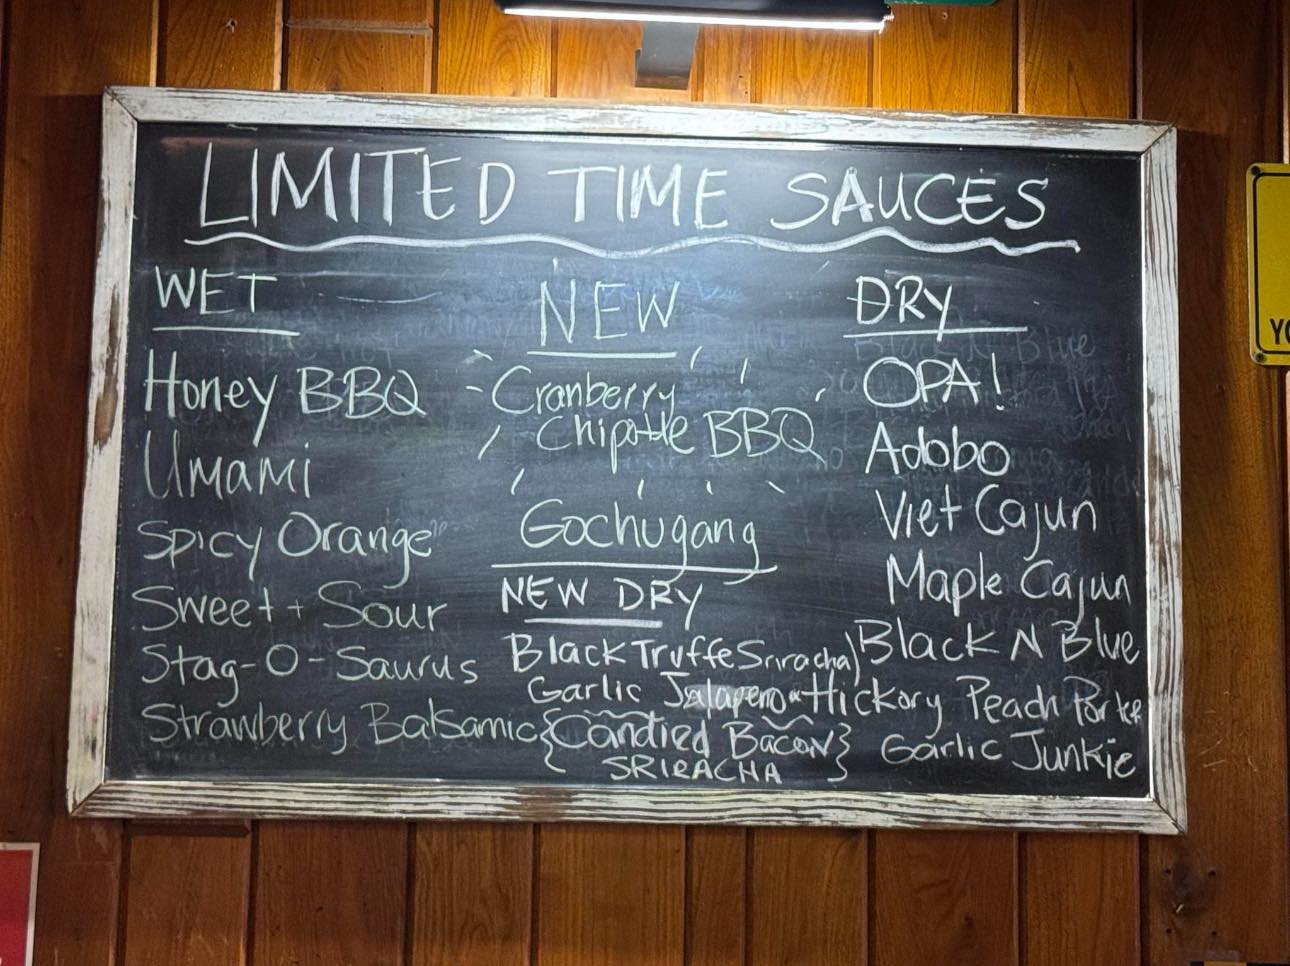 LIMITED TIME SAUCES
WET
Honey BBQ
Umami
Spicy Orange
Sweet + Sour
Stag-O-Saurus
Strawberry Balsamic
NEW
Cranberry
Chipotle BBQ
Gochugang
NEW DRY
Black Truffe Sriracha
Garlic Jalapeno
{Candied Bacon}
SRIRACHA
DRY
OPA!
Adobo
Viet Cajun
Maple Cajun
Black N Blue
Hickory Peach Porter
Garlic Junkie